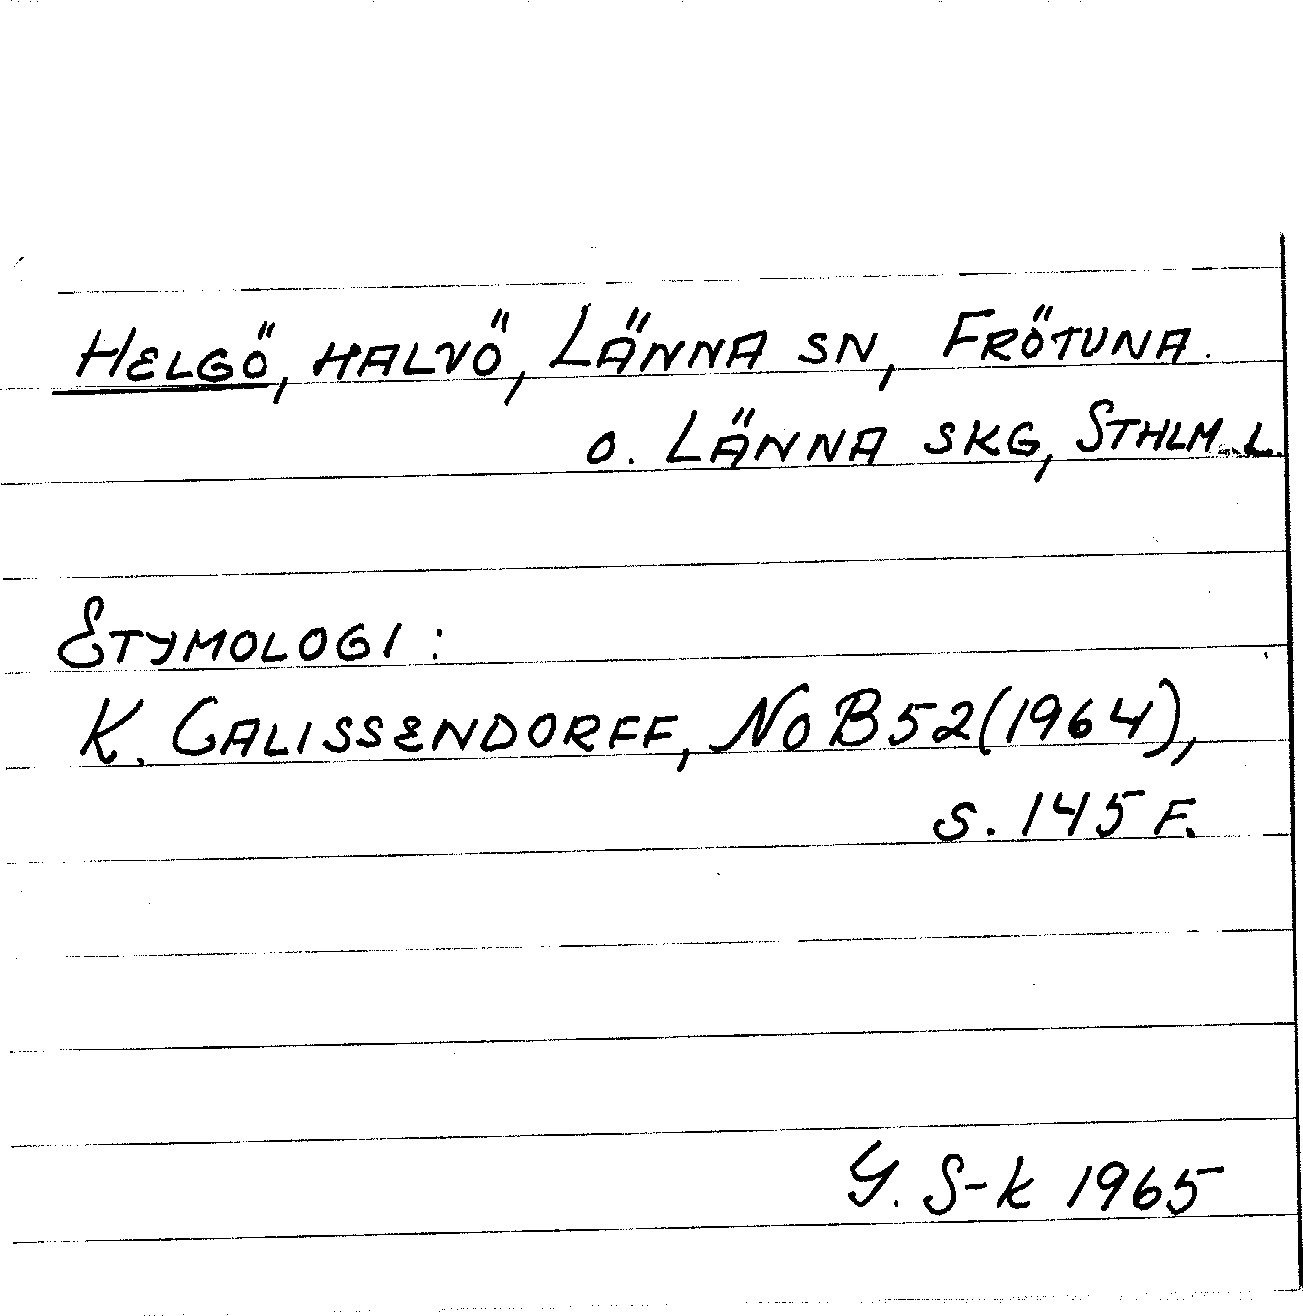 HELGÖ, HALVÖ, LÄNNA SN, FRÖTUNA.
O. LÄNNA SKG, STHLM.L.
ETYMOLOGI:
K. CALISSENDORFF, NoB 52 (1964),
S. 145 F.
G. S-k 1965